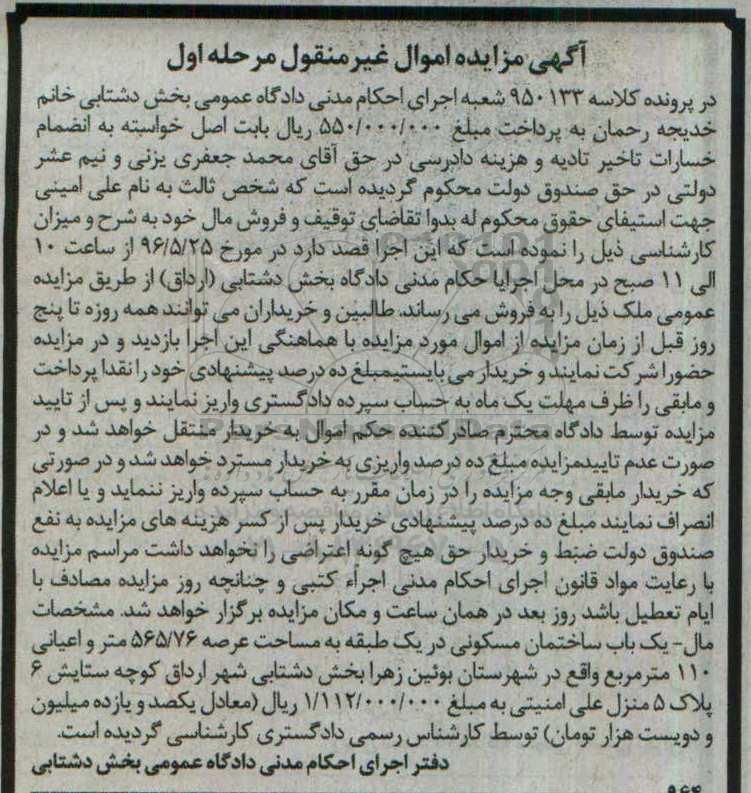 آگهی مزایده اموال غیرمنقول مرحله اول
در پرونده کلاسه ۹۵۰۱۳۳ شعبه اجرای احکام مدنی دادگاه عمومی بخش دشتابی خانم
خدیجه رحمان به پرداخت مبلغ ۵۵۰/۰۰۰/۰۰۰ ریال بابت اصل خواسته به انضمام
خسارات تاخیر تادیه و هزینه دادرسی در حق آقای محمد جعفری یزنی و نیم عشر
دولتی در حق صندوق دولت محکوم گردیده است که شخص ثالث به نام علی امینی
جهت استیفای حقوق محکوم له بدوا تقاضای توقیف و فروش مال خود به شرح و میزان
کارشناسی ذیل را نموده است که این اجرا قصد دارد در مورخ ۹۶/۵/۲۵ از ساعت ۱۰
الی ۱۱ صبح در محل اجرایا حکام مدنی دادگاه بخش دشتابی (ارداق) از طریق مزایده
عمومی ملک ذیل را به فروش می رساند. طالبین و خریداران می توانند همه روزه تا پنج
روز قبل از زمان مزایده از اموال مورد مزایده با هماهنگی این اجرا بازدید و در مزایده
حضورا شرکت نمایند و خریدار می بایستیمبلغ ده درصد پیشنهادی خود را نقدا پرداخت
و مابقی را ظرف مهلت یک ماه به حساب سپرده دادگستری واریز نمایند و پس از تایید
مزایده توسط دادگاه محترم صادرکننده حکم اموال به خریدار منتقل خواهد شد و در
صورت عدم تاییدمزایده مبلغ ده درصد واریزی به خریدار مسترد خواهد شد و در صورتی
که خریدار مابقی وجه مزایده را در زمان مقرر به حساب سپرده واریز ننماید و یا اعلام
انصراف نمایند مبلغ ده درصد پیشنهادی خریدار پس از کسر هزینه های مزایده به نفع
صندوق دولت ضبط و خریدار حق هیچ گونه اعتراضی را نخواهد داشت مراسم مزایده
با رعایت مواد قانون اجرای احکام مدنی اجراء کتبی و چنانچه روز مزایده مصادف با
ایام تعطیل باشد روز بعد در همان ساعت و مکان مزایده برگزار خواهد شد. مشخصات
مال- یک باب ساختمان مسکونی در یک طبقه به مساحت عرصه ۵۶۵/۷۶ متر و اعیانی
۱۱۰ مترمربع واقع در شهرستان بوئین زهرا بخش دشتابی شهر ارداق کوچه ستایش ۶
پلاک ۵ منزل علی امنیتی به مبلغ ۱/۱۱۲/۰۰۰/۰۰۰ ریال (معادل یکصد و یازده میلیون
و دویست هزار تومان) توسط کارشناس رسمی دادگستری کارشناسی گردیده است.
دفتر اجرای احکام مدنی دادگاه عمومی بخش دشتابی